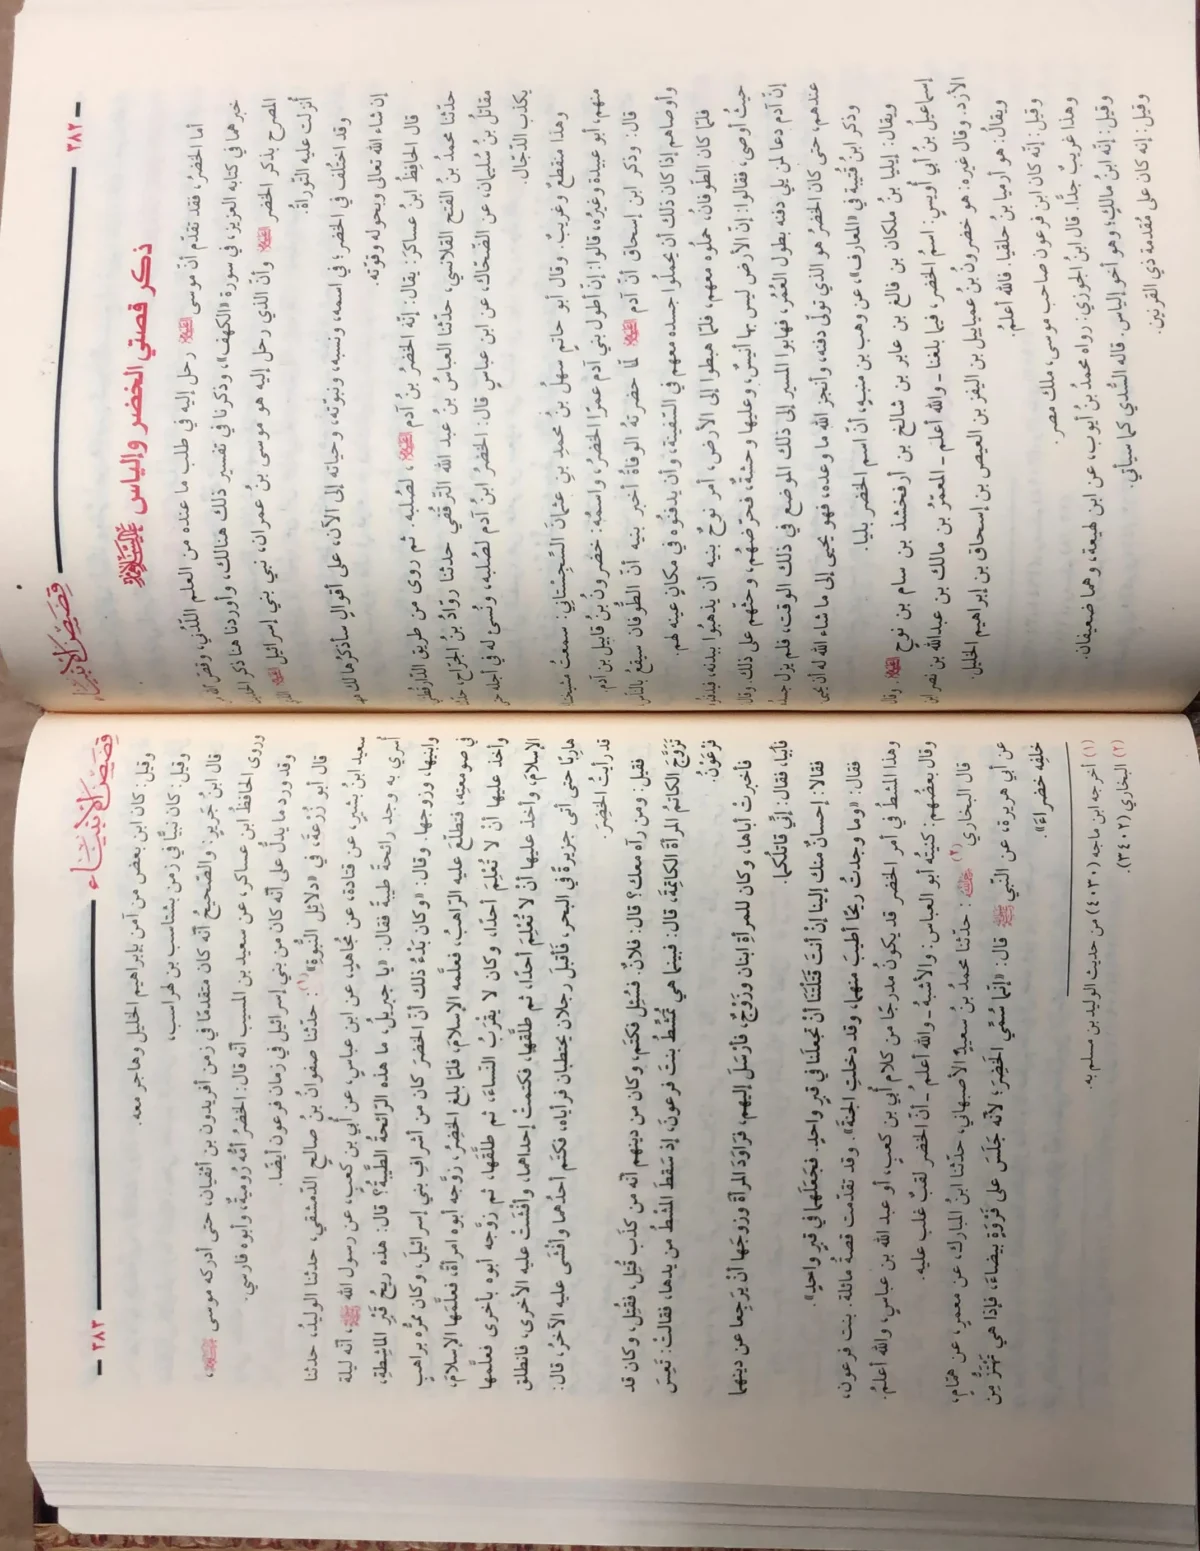 ٣٨٢
قصص الأنبياء
ذكر قصتي الخضر وإلياس عليهما السلام
أما الخضرُ، فقد تقدّم أنّ موسى عليه السلام رحل إليه في طلب ما عنده من العلم اللّدُنِّي، وقصّ الله
خبرهما في كتابه العزيز، في سورة «الكهف»، وذكرنا في تفسير ذلك هنالك، وأوردنا هنا ذكر الحديث
المصرح بذكر الخضر عليه السلام وأنّ الذي رحل إليه هو موسى بنُ عمران، نبي بني إسرائيل عليه السلام الذي
أُنزلت عليه التّوراةُ.
وقد اختُلف في الخضر؛ في اسمه، ونسبه، ونبوّته، وحياته إلى الآن، على أقوالٍ سأذكرُها لك هنا
إن شاء الله تعالى وبحوله وقوّته.
قال الحافظُ ابنُ عساكرَ: يقال: إنّه الخضرُ بنُ آدم عليه السلام، لصُلبه. ثم روى من طريق الدّارقُطني
حدّثنا محمدُ بنُ الفتح القلانسي، حدّثنا العباسُ بنُ عبد الله التّرقُفي حدّثنا روّادُ بنُ الجرّاح، حدّثنا
مقاتلُ بنُ سُليمان، عن الضّحاك، عن ابن عباسٍ قال: الخضرُ ابنُ آدم لصُلبه، ونُسئ له في أجله حتى
يكذب الدّجال.
وهذا منقطعٌ وغريبٌ. وقال أبو حاتم سهلُ بنُ محمدِ بنِ عثمانَ السِّجستاني: سمعتُ مشيختنا
منهم، أبو عبيدة وغيرُه، قالوا: إنّ أطول بني آدم عمرًا الخضرُ، واسمُهُ: خضرونُ بنُ قابيل بن آدم.
قال: وذكر ابن إسحاق أنّ آدم عليه السلام لمّا حضرتهُ الوفاةُ أخبر بنيه أنّ الطُّوفان سيقعُ بالنّاس
وأوصاهم إذا كان ذلك أن يحملُوا جسده معهم في السّفينة، وأن يدفنُوه في مكانٍ عينه لهم.
فلمّا كان الطوفانُ، حملُوه معهم، فلمّا هبطُوا إلى الأرض، أمر نوحٌ بنيه أن يذهبُوا ببدنه، فيدفنُوه
حيثُ أوصى، فقالوا: إنّ الأرض ليس بها أنيسٌ، وعليها وحشةٌ، فحرّضهُم، وحثّهم على ذلك. وقال
إنّ آدم دعا لمن يلي دفنه بطول العُمُر، فهابُوا المسير إلى ذلك الموضع في ذلك الوقت، فلم يزل جسدُه
عندهم، حتى كان الخضرُ هو الذي تولّى دفنه، وأنجز الله ما وعده، فهو يحيى إلى ما شاء الله له أن يحيى
وذكر ابنُ قُتيبة في «المعارف»، عن وهب بن منبه، أنّ اسم الخضر بليا.
ويقال: إيليا بنُ مَلكان بن فالغ بن عابر بن شالخ بن أرفخشذ بن سام بن نوح عليه السلام. وقال
إسماعيلُ بنُ أبي أُويس: اسمُ الخضرِ، فيما بلغنا - والله أعلم - المعمّرُ بن مالك بن عبدالله بن نصر ابن
الأزد. وقال غيره: هو خضرونُ بنُ عمياييل بن اليفز بن العيص بن إسحاق بن إبراهيم الخليل.
ويقالُ: هو أرميا بنُ حلقيا. فالله أعلمُ.
وقيل: إنّه كان ابن فرعون صاحب موسى، ملك مصر.
وهذا غريبٌ جدًّا. قال ابنُ الجوزي: رواه محمدُ بنُ أيوب، عن ابن لهيعة، وهما ضعيفان.
وقيل: إنّه ابنُ مالكٍ، وهو أخو إلياس. قاله السُّدي كما سيأتي.
وقيل: إنّه كان على مُقدمة ذي القرنين.
قصص الأنبياء
٣٨٣
وقيل: كان ابن بعض من آمن بإبراهيم الخليل وهاجر معه.
وقيل: كان نبيًّا في زمن بشتاسب بن لهراسب.
قال ابنُ جريرٍ: والصّحيحُ أنّه كان متقدمًا في زمن أفريدون بن أثفيان، حتى أدركه موسى عليه السلام.
وروى الحافظُ ابن عساكر، عن سعيد بن المسيب أنّه قال: الخضرُ أُمُّه رُوميةٌ، وأبوه فارسي.
وقد ورد ما يدلُّ على أنّه كان من بني إسرائيل في زمان فرعون أيضًا.
قال أبو زُرْعَةَ، في «دلائِل النُّبوة»(١): حدّثنا صفوانُ بنُ صالح الدّمشقي، حدثنا الوليدُ، حدثنا
سعيد ابنُ بشير، عن قتادة، عن مُجاهدٍ، عن ابن عباس، عن أبي بن كعبٍ، عن رسول الله ﷺ، أنّه ليلة
أُسري به وجد رائحةً طيبةً فقال: «يا جبريلُ، ما هذه الرّائحةُ الطّيّبةُ؟ قال: هذه ريحُ قَبْرِ الماشِطةِ،
وابنيها، وزوجها وقال: «وكان بَدْءُ ذلك أنّ الخضرَ كان من أشرافِ بني إسرائيلَ، وكان ممرُّه براهبٍ
في صومعتِه، فتطلّعَ عليه الرّاهبُ، فعلّمه الإسلامَ، فلمّا بلغ الخضِرُ، زوّجه أبوه امرأةً، فعلّمَها الإسلامَ،
وأخذ عليها أنْ لا تُعْلِمَ أحدًا، وكان لا يقربُ النّساءَ، ثم طلّقها، ثم زوّجه أبوه بأخرى فعلّمها
الإسلامَ، وأخذ عليها أنْ لا تُعْلِمَ أحدًا، ثم طلّقها، فكتمتْ إحداهما، وأفْشَتْ عليه الأخرى، فانطلق
هاربًا حتى أتى جزيرةً في البحرِ، فأقبلَ رجلانِ يحتطبانِ فرأياه، فكتم أحدُهما وأفْشَى عليه الآخرُ، قال:
قد رأيتُ الخضِرَ.
فقيل: ومن رآه معك؟ قال: فلانٌ. فسُئِل فكتمَ، وكان من دينِهم أنّه من كذَب قُتِل، فقُتِل، وكان قد
تزوّجَ الكاتمُ المرأةَ الكاتمةَ، قال: فبينما هي تمْشُطُ بنتَ فرعونَ، إذْ سَقَطَ المُشْطُ من يدها، فقالتْ: تَعِسَ
فرْعونُ.
فأخبرتْ أباها، وكان للمرأةِ ابنان وزَوْجٌ، فأَرْسَلَ إليهم، فراوَدَ المرأةَ وزوجَها أنْ يَرْجِعا عن دينِهما
فأَبَيا، فقال: إنِّي قاتلُكما.
فقالا: إحسانٌ منكَ إلينا إنْ أنتَ قَتَلْتَنَا أنْ تجعلَنا في قبرٍ واحدٍ. فجعلَهما في قبرٍ واحدٍ.
فقال: «وما وجدتُ ريحًا أطيبَ منهما، وقد دخلتِ الجنّةَ». وقد تقدّمت قصةُ ماثلة. بنت فرعون،
وهذا المشطُ في أمر الخضر قد يكونُ مدرجًا من كلام أُبي بن كعبٍ، أو عبد الله بن عباس، والله أعلمُ.
وقال بعضُهم: كنيتُه أبو العباس: والأشبهُ - والله أعلمُ - أنّ الخضر لقبٌ غلب عليه.
قال البخاري رحمه الله(٢): حدّثنا محمدُ بنُ سعيدٍ الأصبهاني، حدّثنا ابنُ المبارك، عن معمر، عن همّام،
عن أبي هريرة، عن النّبي ﷺ قال: «إنّما سُمِّي الخَضِرَ؛ لأنّه جَلَسَ على فَرْوَةٍ بيضاءَ، فإذا هي تَهْتَزُّ مِن
خلفِه خضراءَ».
(١) أخرجه ابن ماجه (٤٠٣٠) من حديث الوليد بن مسلم به.
(٢) البخاري (٣٤٠٢).